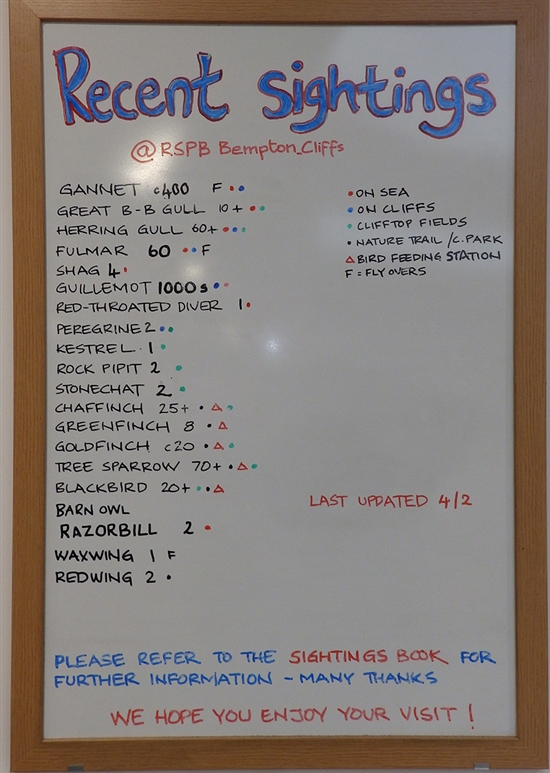 Recent sightings
@ RSPB Bempton Cliffs
GANNET c400 F
GREAT B-B GULL 10+
HERRING GULL 60+
FULMAR 60 F
SHAG 4
GUILLEMOT 1000s
RED-THROATED DIVER 1
PEREGRINE 2
KESTREL 1
ROCK PIPIT 2
STONECHAT 2
CHAFFINCH 25+
GREENFINCH 8
GOLDFINCH c20
TREE SPARROW 70+
BLACKBIRD 20+
BARN OWL
RAZORBILL 2
WAXWING 1 F
REDWING 2
ON SEA
ON CLIFFS
CLIFFTOP FIELDS
NATURE TRAIL / C.PARK
BIRD FEEDING STATION
F = FLY OVERS
LAST UPDATED 4/2
PLEASE REFER TO THE SIGHTINGS BOOK FOR
FURTHER INFORMATION - MANY THANKS
WE HOPE YOU ENJOY YOUR VISIT !